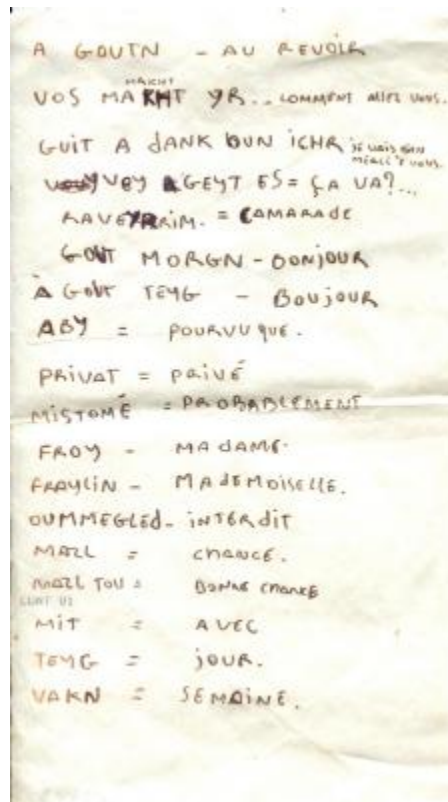 A GOUTN - AU REVOIR
MAICHT
VOS MAKHT YR.. COMMENT ALLEZ VOUS.
GUIT A DANK BUN ICHR JE VAIS BIEN
MERCI & VOUS.
VEY AGEYT ES = ÇA VA?...
RAVEYRIM. = CAMARADE
GOUT MORGN - BONJOUR
A GOUT TEYG - BOUJOUR
ABY = POURVU QUE.
PRIVAT = PRIVÉ
MISTOMÉ = PROBABLEMENT
FROY - MADAME.
FRAYLIN - MADEMOISELLE.
OUMMEGLED - INTERDIT
MAZL = CHANCE.
MAZL TOU = BONNE CHANCE
MIT = AVEC
TEYG = JOUR.
VAKN = SEMAINE.